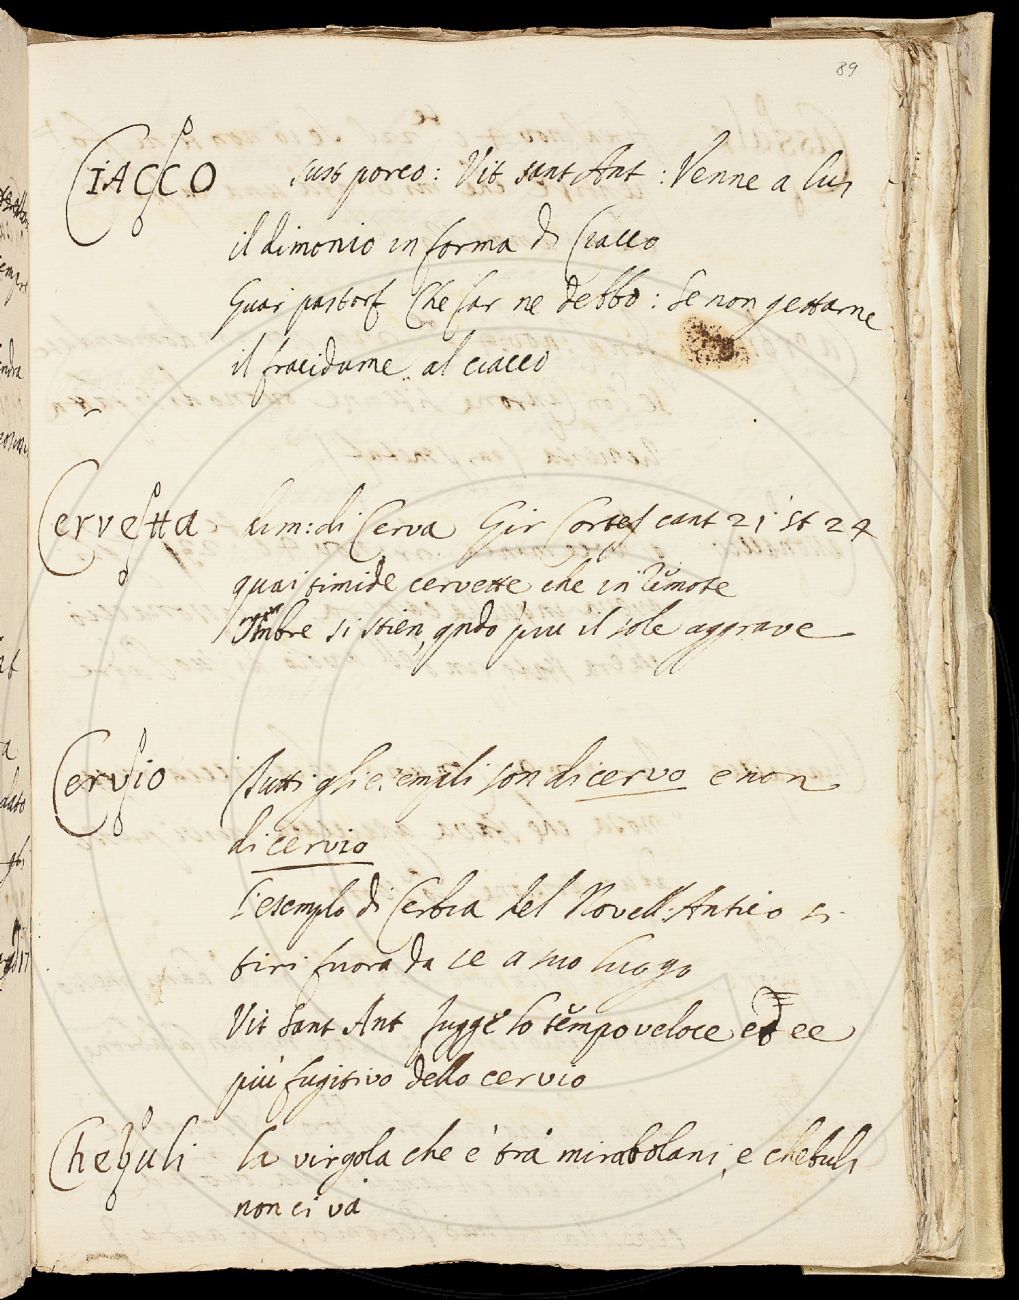 89
CIACCO sust porco: Vit sant Ant: Venne a lui
il dimonio in forma di Ciacco
Guar pastorf Che far ne debbo: Se non gettarne
il fracidume al ciacco
Cervetta dim: di Cerva Gir Cortes cant 21 st 24
quai timide cervette che in rĕmote
Ombre si stien, qndo piu il sole aggrave
Cervio Tutti gli esempli son di cervo e non
di cervio
l'esemplo di Cerbia del Novell: Antico si
tiri fuora da se a suo luogo
Vit Sant Ant fugge lo tĕmpo veloce ed ee
piu fugitivo dello cervio
Chebuli la virgola che è tra mirabolani, e chebuli
non ci và